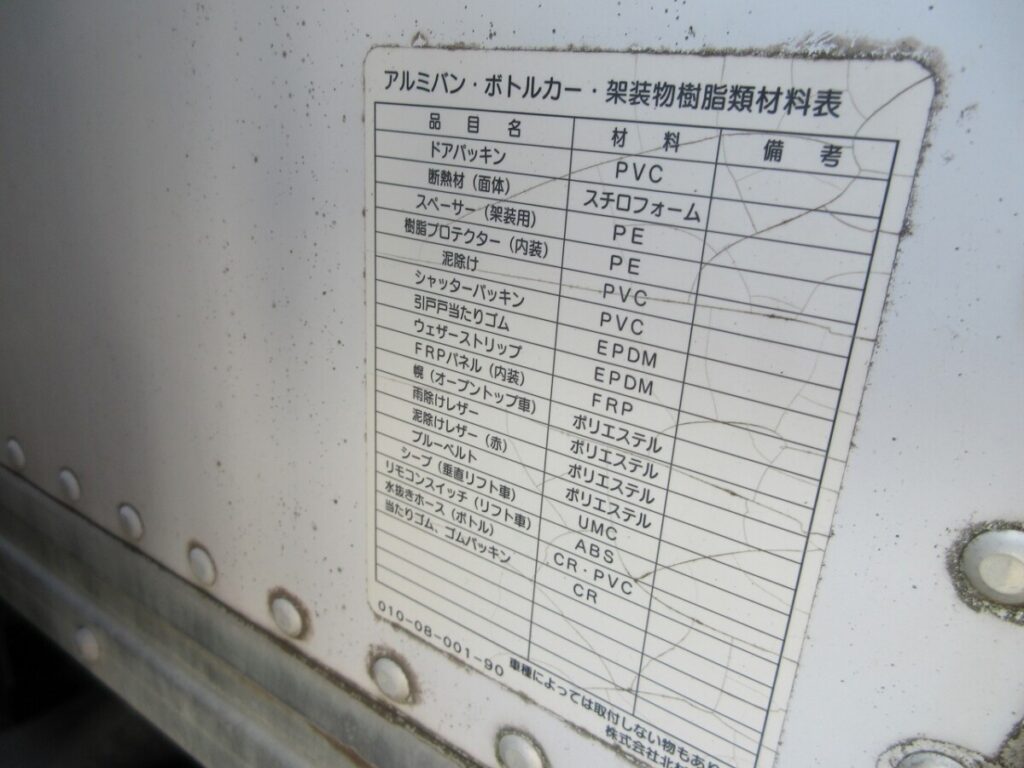 アルミバン・ボトルカー・架装物樹脂類材料表
品目名 材料 備考
ドアパッキン PVC
断熱材（面体） スチロフォーム
スペーサー（架装用） PE
樹脂プロテクター（内装） PE
泥除け PVC
シャッターパッキン PVC
引戸戸当たりゴム EPDM
ウェザーストリップ EPDM
FRPパネル（内装） FRP
幌（オープントップ車） ポリエステル
雨除けレザー ポリエステル
泥除けレザー（赤） ポリエステル
ブルーベルト ポリエステル
シーブ（垂直リフト車） UMC
リモコンスイッチ（リフト車） ABS
水抜きホース（ボトル） CR・PVC
当たりゴム、ゴムパッキン CR
010-08-001-90 車種によっては取付しない物もあり
株式会社北